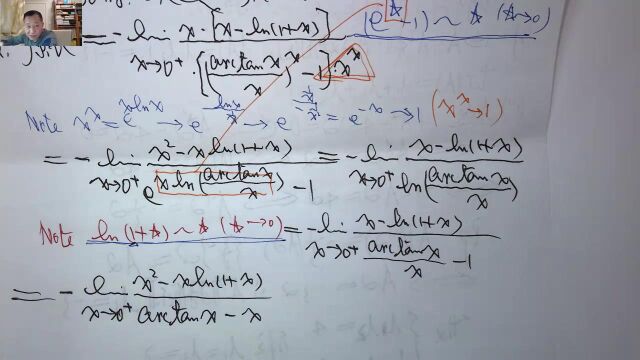 = -lim_{x→0⁺} x·[x-ln(1+x)] / {[(arctanx/x)^x - 1]·x^x} (e^☆-1) ~ ☆ (☆→0)
Note x^x = e^{xlnx} → e^{lnx/(1/x)} → e^{(1/x)/(-1/x²)} = e^{-x} → 1 (x^x→1)
= -lim_{x→0⁺} (x²-xln(1+x)) / (e^{xln(arctanx/x)} - 1) = -lim_{x→0⁺} (x-ln(1+x)) / ln(arctanx/x)
Note ln(1+☆) ~ ☆ (☆→0) = -lim_{x→0⁺} (x-ln(1+x)) / (arctanx/x - 1)
= -lim_{x→0⁺} (x²-xln(1+x)) / (arctanx-x)